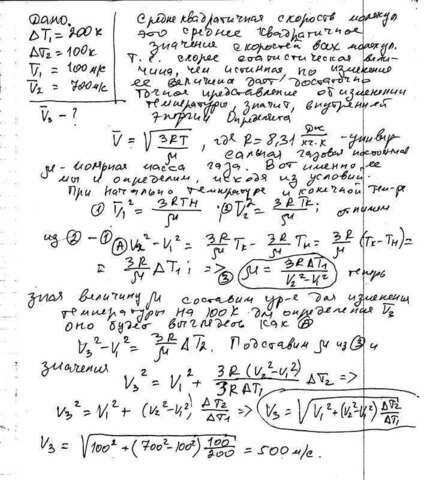 Дано.
ΔT₁ = 200к
ΔT₂ = 100к
V̅₁ = 100м/с
V̅₂ = 700м/с
V̅₃ - ?
Средне квадратичная скорость молекул
это среднее квадратичное
значение скоростей всех молекул.
Т. е. скорее статистическая вели-
чина, чем истинная но изменение
ее величины дает достаточно
точное представление об изменении
температуры, значит, внутренней
энергии
V̅ = √(3RT/μ), где R = 8,31 Дж/кг·к - универ
сальная газовая постоянная
μ - молярная масса газа. Вот именно ее
мы и определим, исходя из условий.
При начально температуре и конечной тем-ре
① V̅₁² = 3RTн/μ ; ② V̅₂² = 3RTк/μ ; отнимем
из ② - ① Ⓐ V₂² - V₁² = 3R/μ Tк - 3R/μ Tн = 3R/μ (Tк - Tн) =
= 3R/μ ΔT₁ ; => ③ μ = 3RΔT₁/(V₂² - V₁²) теперь
зная величину μ составим ур-е для изменения
температуры на 100к для определения V̅₃
оно будет выглядеть как Ⓐ
V₃² - V₁² = 3R/μ ΔT₂. Подставим μ из ③ и
значения
V₃² = V₁² + 3R(V₂² - V₁²)/3RΔT₁ ΔT₂ =>
V₃² = V₁² + (V₂² - V₁²) ΔT₂/ΔT₁ => V₃ = √(V₁² + (V₂² - V₁²) ΔT₂/ΔT₁)
V₃ = √(100² + (700² - 100²) 100/200) = 500 м/с.